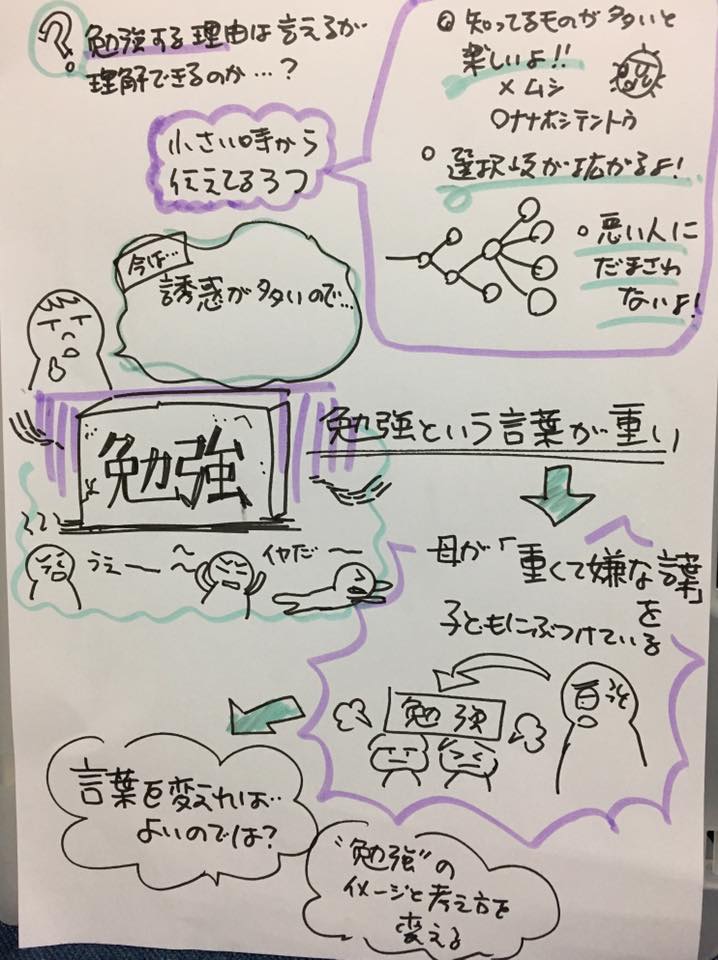 ?
勉強する理由は言えるか
理解できるのか…?
小さい時から
伝えてるつもり
◎知ってるものが多いと
楽しいよ!!
×ムシ
○ナナホシテントウ
○選択肢が拡がるよ!
○悪い人に
だまされ
ないよ!
今は…
誘惑が多いので…
勉強
勉強という言葉が重い
うえー〜〜
イヤだ〜
母が「重くて嫌な言葉」
を
子どもにぶつけている
勉強
言葉を変えれば…
よいのでは?
"勉強"の
イメージと考え方を
変える